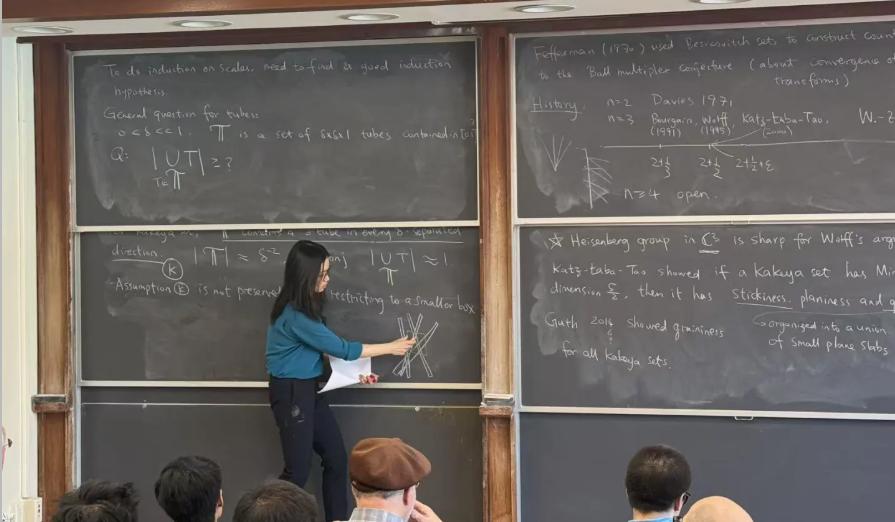 To do induction on scales, need to find a good induction
hypothesis.
General question for tubes:
0 < δ << 1. 𝕋 is a set of δxδx1 tubes contained in
Q: | ∪ T | ≥ ?
T∈𝕋
𝕋 contains a δ-tube in every δ-separated
direction. |𝕋| ≈ δ⁻² conj | ∪ T | ≈ 1
Ⓚ 𝕋
- Assumption Ⓚ is not preserved restricting to a smaller box
Fefferman (1970) used Besicovitch sets to construct
to the Ball multiplier conjecture (about convergence of
transforms)
History. n=2 Davies 1971
n=3 Bourgain, Wolff, Katz-Łaba-Tao, W.-Z
(1991) (1995) (2000)
2+1/3 2+1/2 2+1/2+ε
n≥4 open.
☆ Heisenberg group in ℂ³ is sharp for Wolff's
Katz-Łaba-Tao showed if a Kakeya set has
dimension 5/2, then it has stickiness, planiness and
Guth 2016 showed graininess
organized into a union
of small plane slabs
for all Kakeya sets.